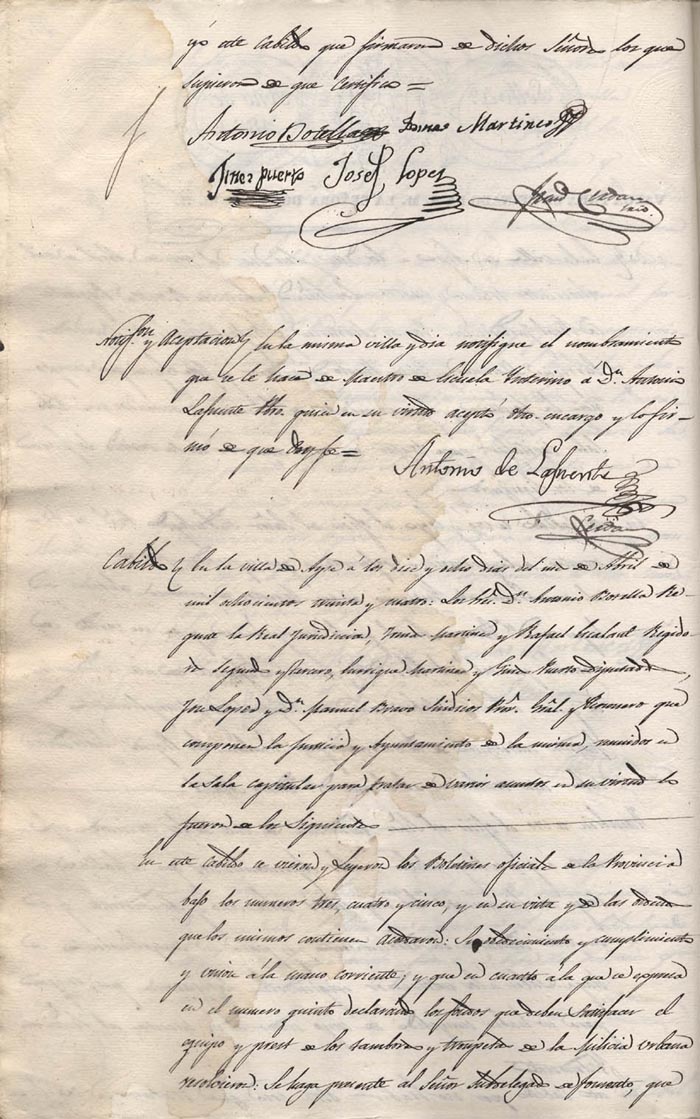 yó este Cabildo que firmaron de dichos Señores los que
supieron de que Certifico =
Antonio Botella Tomas Martinez
Gines Puerto Josef Lopez
Notifon. y Aceptacion En la misma villa y dia notifique el nombramiento
que se le hace de Maestro de Escuela Ynterino á Dn. Antonio
Lafuente Pbro. quien en su virtud aceptó dho. encargo y lo fir-
mó de que doy fe =
Antonio de Lafuente
Cabildo En la villa de á los diez y ocho dias del mes de Abril de
mil ochocientos treinta y cuatro: Los Sres. Dn. Antonio Botella Re-
gente la Real Jurisdiccion, Tomas Martinez y Rafael Rigido-
res segundo y tercero, Enrique Martinez y Gines Puerto Diputados,
Jose Lopez y Dn. Manuel Bravo Sindicos Pror. Gral. y Personero que
componen la Justicia y Ayuntamiento de la misma, reunidos en
la Sala Capitular para tratar de varios asuntos en su virtud lo
fueron de los Siguientes
En este Cabildo se vieron y Leyeron los Boletines oficiales de la Provincia
bajo los numeros tres, cuatro y cinco, y en su vista y de las ordenes
que los mismos contienen acordaron: Su obedecimiento y cumplimiento
y union á la mano corriente; y que en cuanto á la que se expresa
en el numero quinto declarando los fondos que deben Satisfacer el
equipo y prest de los tambores y trompetas de la Milicia urbana
resolvieron: Se haga presente al Señor Subdelegado de fomento, que